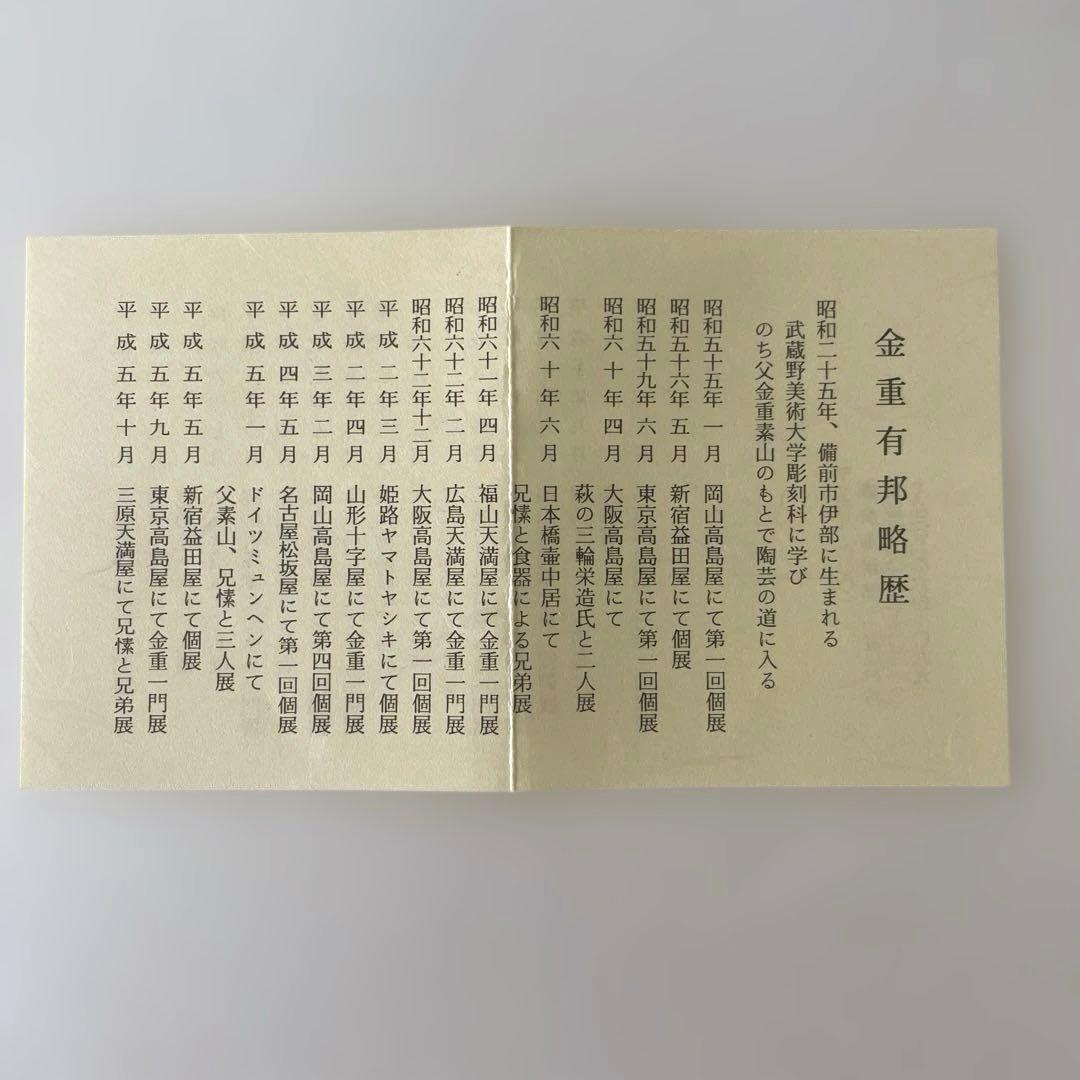 金重有邦略歴
昭和二十五年、備前市伊部に生まれる
武蔵野美術大学彫刻科に学び
のち父金重素山のもとで陶芸の道に入る
昭和五十五年 一月 岡山高島屋にて第一回個展
昭和五十六年 五月 新宿益田屋にて個展
昭和五十九年 六月 東京高島屋にて第一回個展
昭和六十年 四月 大阪高島屋にて
萩の三輪栄造氏と二人展
昭和六十年 六月 日本橋壷中居にて
兄愫と食器による兄弟展
昭和六十一年 四月 福山天満屋にて金重一門展
昭和六十二年 二月 広島天満屋にて金重一門展
昭和六十二年十二月 大阪高島屋にて第一回個展
平成 二年三月 姫路ヤマトヤシキにて個展
平成 二年四月 山形十字屋にて金重一門展
平成 三年二月 岡山高島屋にて第四回個展
平成 四年五月 名古屋松坂屋にて第一回個展
平成 五年一月 ドイツミュンヘンにて
父素山、兄愫と三人展
平成 五年五月 新宿益田屋にて個展
平成 五年九月 東京高島屋にて金重一門展
平成 五年十月 三原天満屋にて兄愫と兄弟展